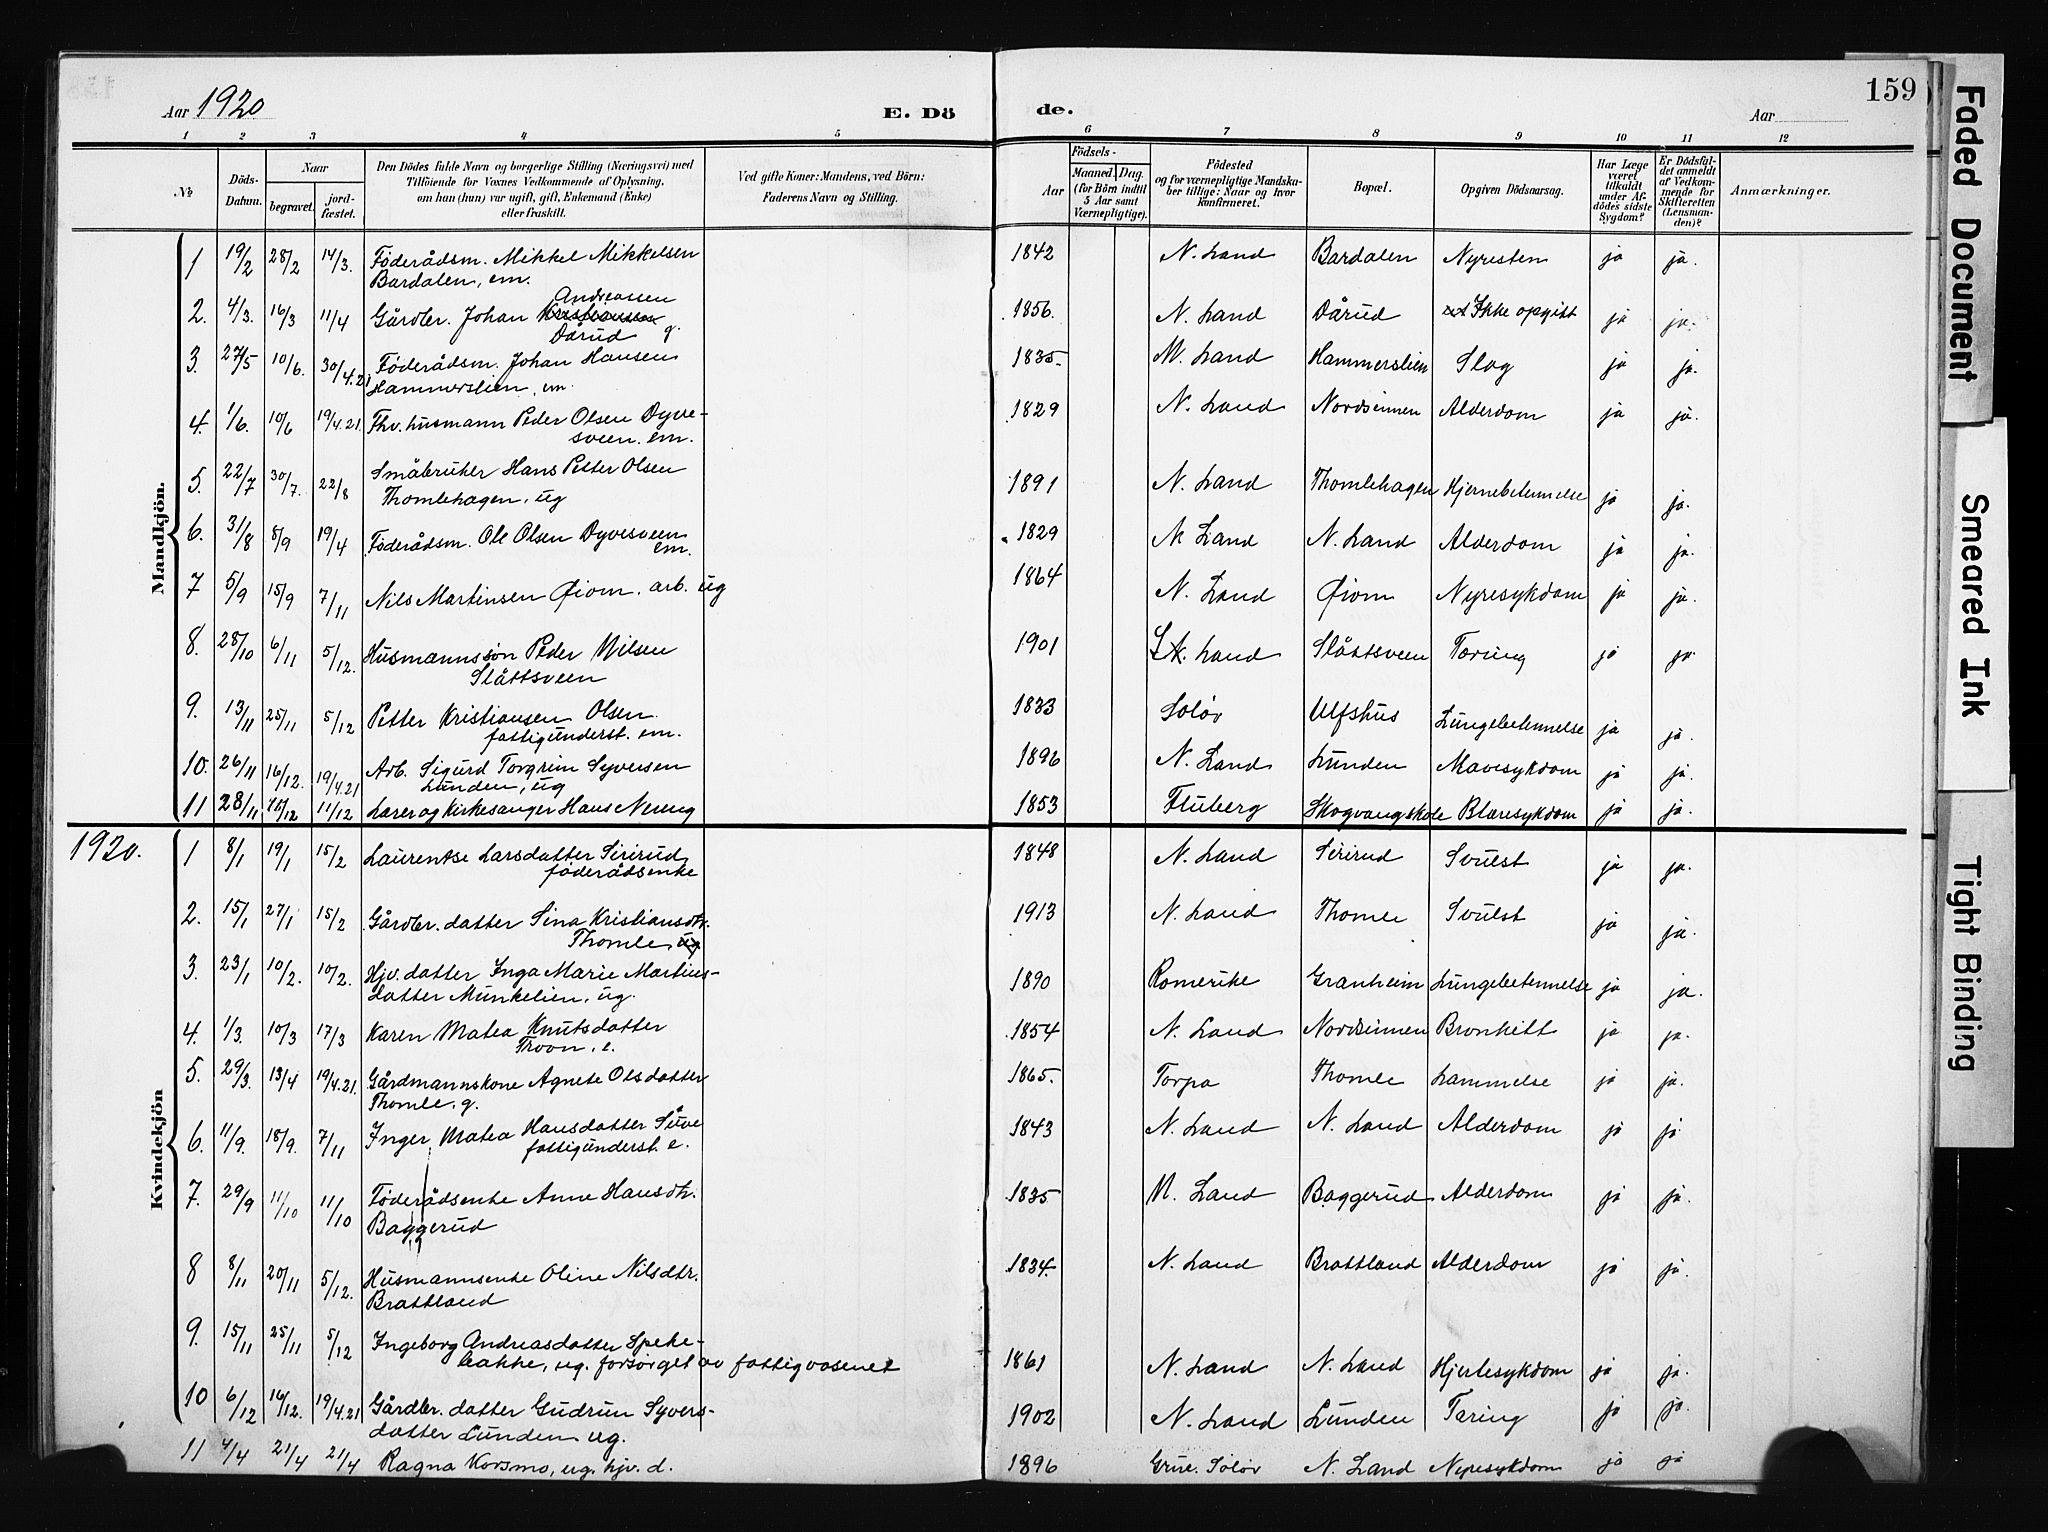 Aar 1920
E. Dö
de.
Aar
159
1 2 3 4 5 6 7 8 9 10 11 12
№
Döds-Datum.
Naar
begravet.
jord-fæstet.
Den Dödes fulde Navn og borgerlige Stilling (Næringsvei) med
Tilföiende for Voxnes Vedkommende af Oplysning,
om han (hun) var ugift, gift, Enkemand (Enke)
eller fraskilt.
Ved gifte Koner: Mandens, ved Börn:
Faderens Navn og Stilling.
Födsels-
Aar
Maaned. Dag.
(for Börn indtil
5 Aar samt
Værnepligtige).
Födested
og for værnepligtige Mandska-
ber tillige: Naar og hvor
konfirmeret.
Bopæl.
Opgiven Dödsaarsag.
Har Læge
været
tilkaldt
under Af-
dödes sidste
Sygdom?
Er Dödsfal-
det anmeldt
af Vedkom-
mende for
Skifteretten
(Lensman-
den)?
Anmærkninger.
Mandkjön.
1 19/2 28/2 14/3. Föderådsm. Mikkel Mikkelsen 1842 N. Land Bardalen Nyresten ja ja.
Bardalen, em.
Andreassen
2. 4/3. 16/3 11/4 Gårdbr. Johan Kristiansen 1856. N. Land Dårud Ikke opgitt ja ja.
Dårud g.
3. 27/5 10/6. 30/4.21 Föderådsm. Johan Hansen 1835. N. Land Hammerslien Slag ja ja.
Hammerslien, em.
4. 1/6. 10/6 19/4.21. Fhv. husmann Peder Olsen Dyve- 1829 N. Land Nordsinnen Alderdom ja ja.
sveen. em.
5. 22/7 30/7. 22/8 Småbruker Hans Petter Olsen 1891 N. Land Thomlehagen Hjernebetennelse ja ja.
Thomlehagen, ug
6. 31/8 8/9 19/4 Föderådsm. Ole Olsen Dyvesveen 1829 N. Land N. Land Alderdom ja ja.
em.
7 5/9 15/9 7/11 Nils Martinsen Øiom. arb. ug 1864 N. Land Øiom Nyresykdom ja ja.
8. 28/10 6/11 5/12. Husmannssön Peder Nilsen 1901 S. Land Slåttsveen Tæring ja ja.
Slåttsveen
9. 13/11 25/11 5/12 Petter Kristiansen Olsen 1833 Solör Ulfshus Lungebetennelse ja ja.
fattigunderst. em.
10. 26/11 16/12. 19/4.21 Arb. Sigurd Torgrim Syversen 1896 N. Land Lunden Mavesykdom ja ja.
Lunden, ug
11 28/11 15/12 11/12 Lærer og Kirkesanger Hans Nereng 1853 Fluberg Skogvang skole Blæresykdom ja ja.
1920.
Kvindekjön
1 8/1 19/1 15/2 Laurentse Larsdatter Sirirud 1848 N. Land Sirirud Svulst ja ja.
föderådsenke
2. 15/1 27/1 15/2 Gårdbr. datter Sina Kristiansdtr. 1913 N. Land Thomle Svulst ja ja.
Thomle, ug
3. 23/1 10/2. 10/2. Hjv. datter Inga Marie Martins- 1890 Romerike Granheim Lungebetennelse ja ja.
datter Munkelien, ug.
4. 1/3. 10/3 17/3 Karen Matea Knutsdatter 1854 N. Land Nordsinnen Bronkitt ja ja.
Troon, e.
5. 29/3. 13/4 19/4.21. Gårdmannskone Agnete Olsdatter 1865. Torpa Thomle Lammelse ja ja.
Thomle, g.
6. 11/9. 18/9. 7/11 Inger Matea Hansdatter Süve 1843 N. Land N. Land Alderdom ja ja
fattigunderst. e.
7. 29/9 11/10 11/10 Föderådsenke Anne Hansdtr. 1835 N. Land Baggerud Alderdom ja ja.
Baggerud
8 8/11 20/11 5/12. Husmannsenke Oline Nilsdtr. 1834. N. Land Brattland Alderdom ja ja.
Brattland
9. 15/11 25/11 5/12 Ingeborg Andreasdatter Speke-
bakke, ug. forsörget av fattigvæsenet 1861 N. Land N. Land Hjertesykdom ja ja.
10 6/12 16/12. 19/4.21 Gårdbr. datter Gudrun Syvers- 1902 N. Land Lunden Tæring ja ja.
datter Lunden ug.
11 4/4 21/4 21/4 Ragna Korsmo, ug. hjv. d. 1896 Grue. Solör N. Land Nyresykdom ja ja
Faded Document
Smeared Ink
Tight Binding